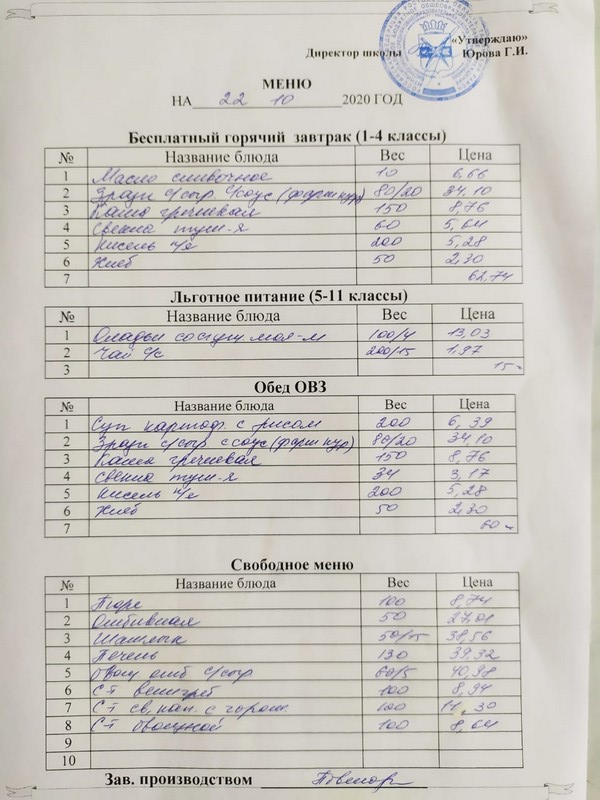 «Утверждаю»
Директор школы Юрова Г.И.
МЕНЮ
НА 22 10 2020 ГОД
Бесплатный горячий завтрак (1-4 классы)
№ Название блюда Вес Цена
1 Масло сливочное 10 6,66
2 Зразы с/сыр с/соус (фарш кур) 80/20 34,10
3 Каша гречневая 150 8,76
4 Свекла туш-я 60 5,64
5 Кисель п/я 200 5,28
6 Хлеб 50 2,30
7 62,74
Льготное питание (5-11 классы)
№ Название блюда Вес Цена
1 Оладьи со сгущ мол-м 100/4 13,03
2 Чай с/с 200/15 1,97
3 15-
Обед ОВЗ
№ Название блюда Вес Цена
1 Суп картоф. с рисом 200 6,39
2 Зразы с/сыр с соус (фарш кур) 80/20 34,10
3 Каша гречневая 150 8,76
4 Свекла туш-я 34 3,17
5 Кисель п/я 200 5,28
6 Хлеб 50 2,30
7 60-
Свободное меню
№ Название блюда Вес Цена
1 Пюре 100 8,74
2 Отбивная 50 27,01
3 Шашлык 50/15 38,56
4 Печень 130 39,32
5 отб с/сыр 60/5 40,98
6 С-т винегрет 100 8,94
7 С-т св. кап. с горош. 100 11,30
8 С-т овощной 100 8,64
9
10
Зав. производством